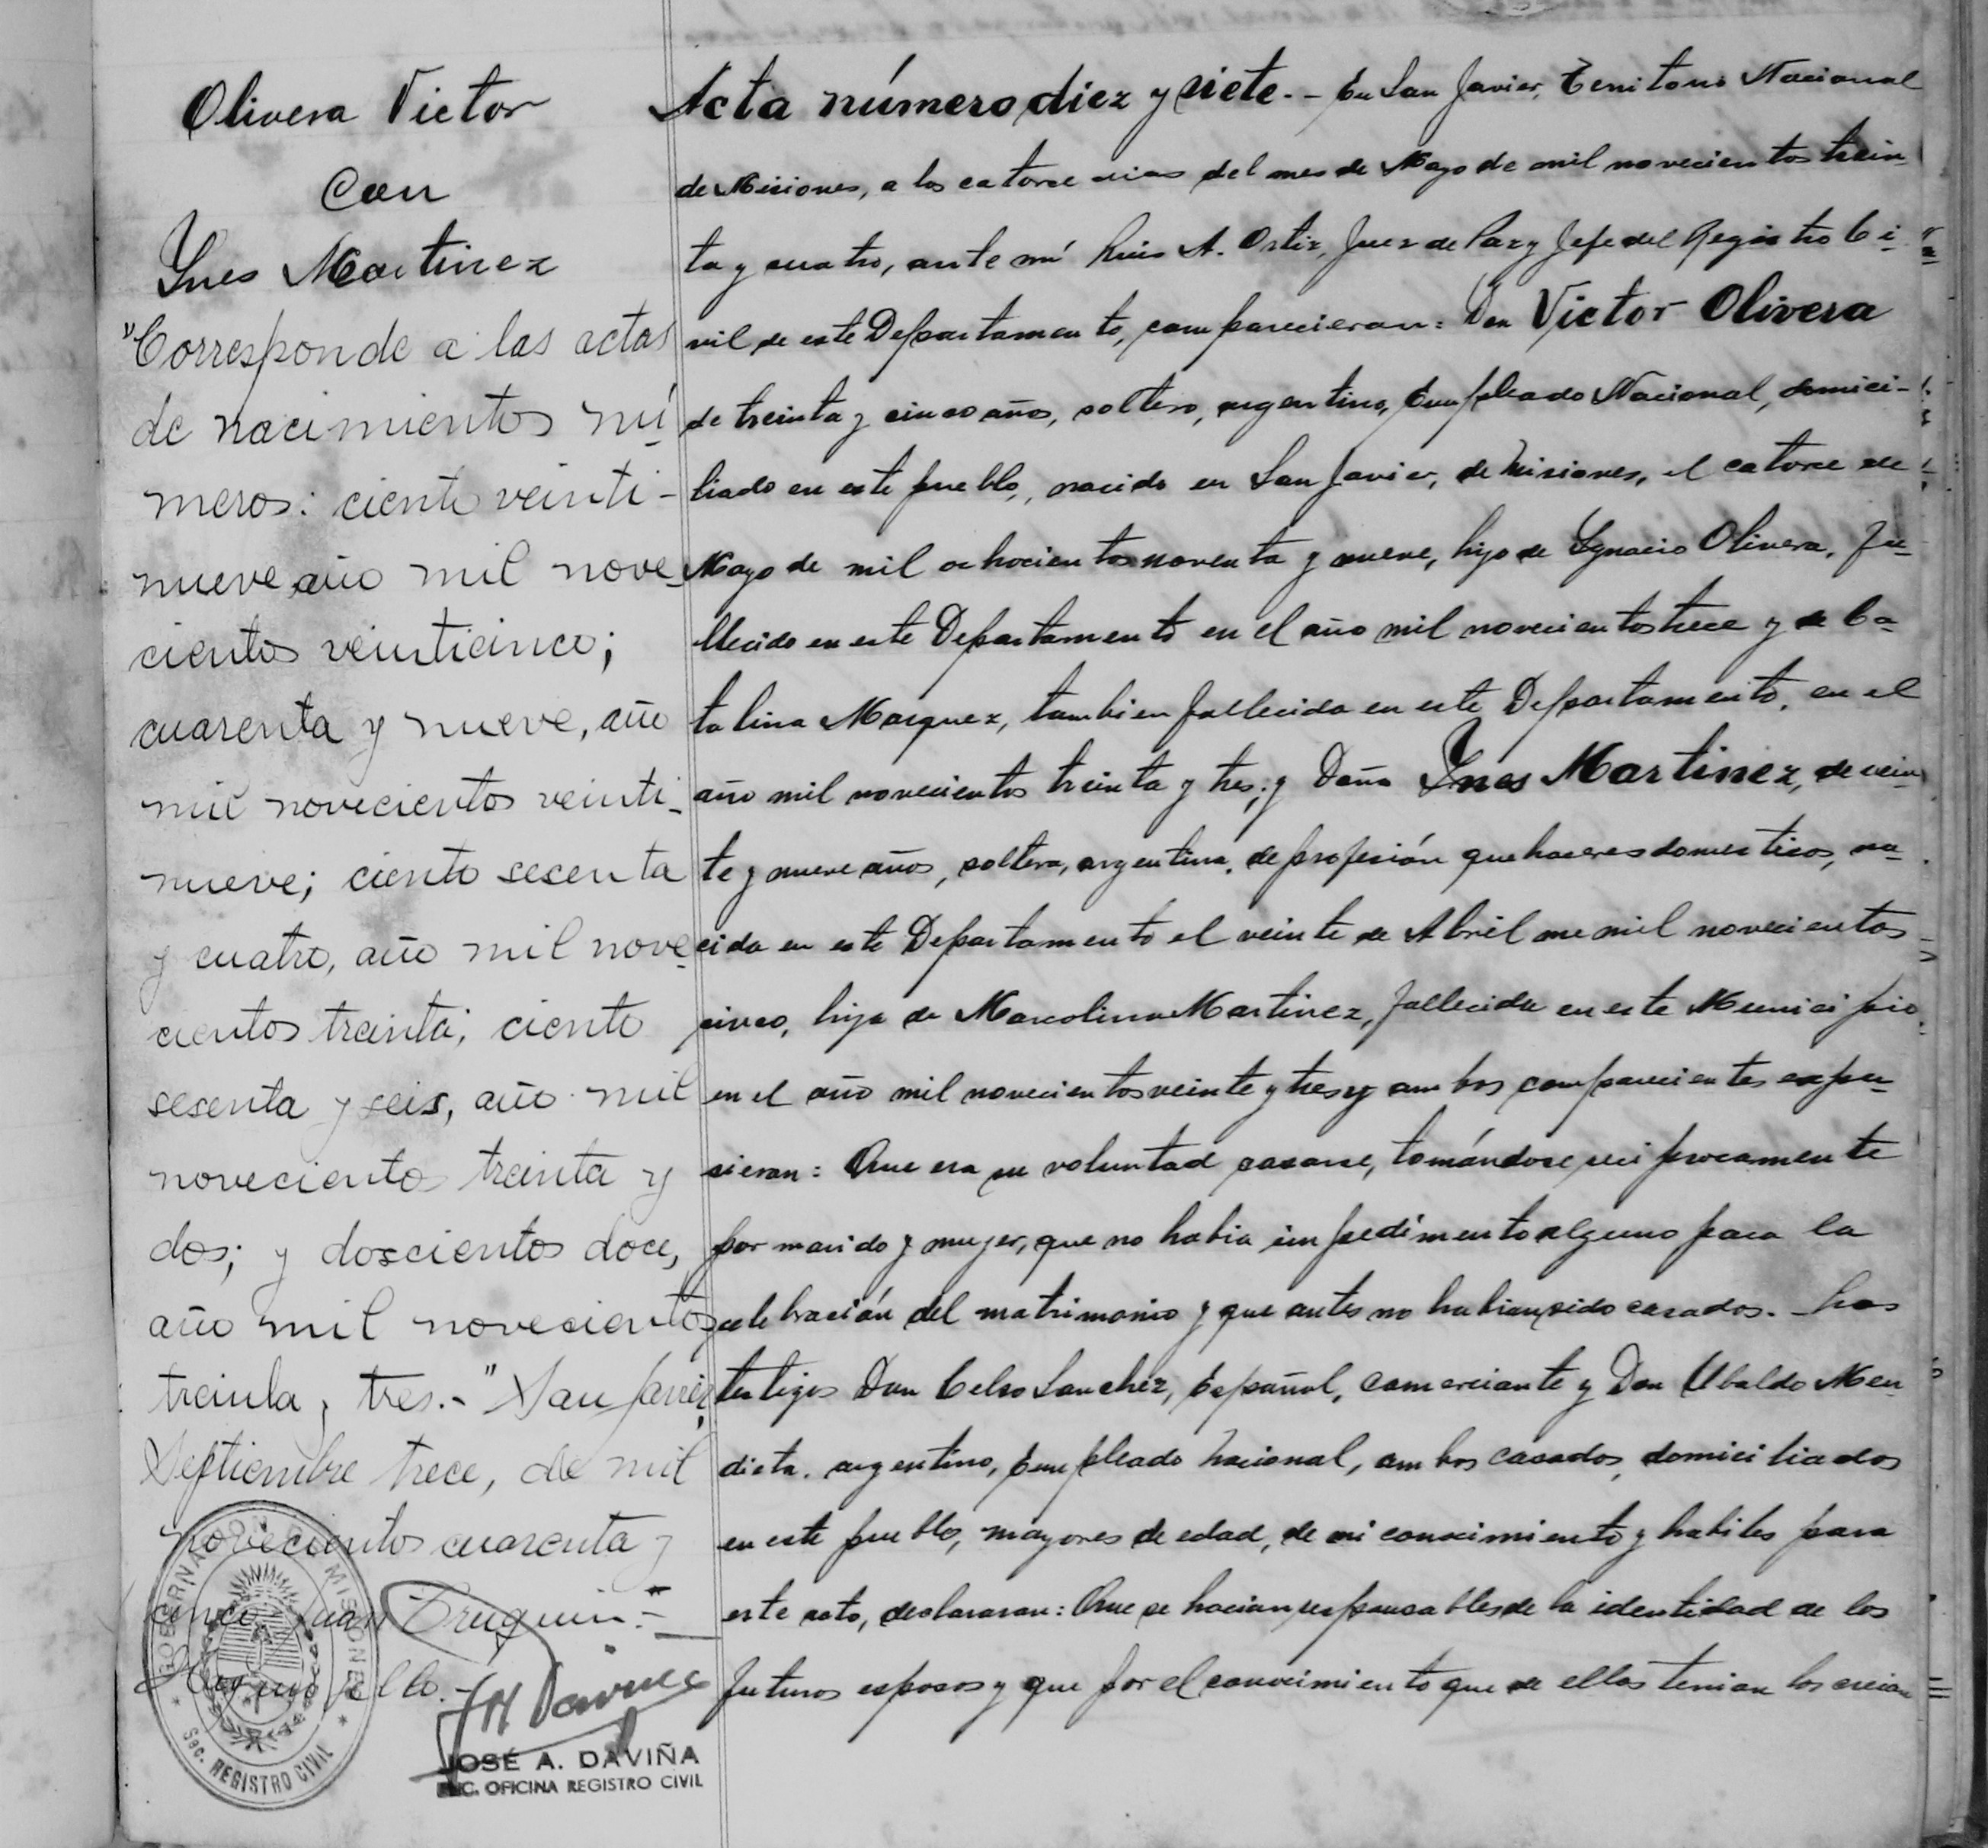 Olivera Victor
con
Ynes Martinez
"Corresponde a las actas
de nacimientos nú-
meros: ciento veinti-
nueve año mil nove-
cientos veinticinco;
cuarenta y nueve, año
mil novecientos veinti-
nueve; ciento sesenta
y cuatro, año mil nove-
cientos treinta; ciento
sesenta y seis, año mil
novecientos treinta y
dos; y doscientos doce,
año mil novecientos
treinta y tres.-" San Javier,
Septiembre trece, de mil
novecientos cuarenta y
cinco. Juan
Hay un sello.-
GOBERNACION MISIONES
SEC. REGISTRO CIVIL
JOSÉ A. DAVIÑA
ENC. OFICINA REGISTRO CIVIL
Acta número diez y siete.- En San Javier, Territorio Nacional
de Misiones, a los catorce dias del mes de Mayo de mil novecientos trein
ta y cuatro, ante mí Luis A. Ortiz, Juez de Paz y Jefe del Registro Ci-
vil de este Departamento, comparecieron: Don Victor Olivera
de treinta y cinco años, soltero, argentino, Empleado Nacional, domici-
liado en este pueblo, nacido en San Javier, de Misiones, el catorce de
Mayo de mil ochocientos noventa y nueve, hijo de Ygnacio Olivera, fa-
llecido en este Departamento en el año mil novecientos trece y de Ca-
talina Marquez, tambien fallecida en este Departamento, en el
año mil novecientos treinta y tres; y Doña Ynes Martinez, de vein
te y nueve años, soltera, argentina, de profesión quehaceres domesticos, na-
cida en este Departamento el veinte de Abril me mil novecientos
cinco, hija de Marcolina Martinez, fallecida en este Municipio
en el año mil novecientos veinte y tres y ambos comparecientes expu-
sieron: Que era su voluntad casarse, tomándose reciprocamente
por marido y mujer, que no habia impedimento alguno para la
celebración del matrimonio y que antes no habian sido casados.- Los
testigos Don Celso Sanchez, Español, comerciante y Don Ubaldo Men
dieta, argentino, Empleado Nacional, ambos casados, domiciliados
en este pueblo, mayores de edad, de mi conocimiento y habiles para
este acto, declararon: Que se hacian responsables de la identidad de los
futuros esposos y que por el conocimiento que de ellos tenian los creian